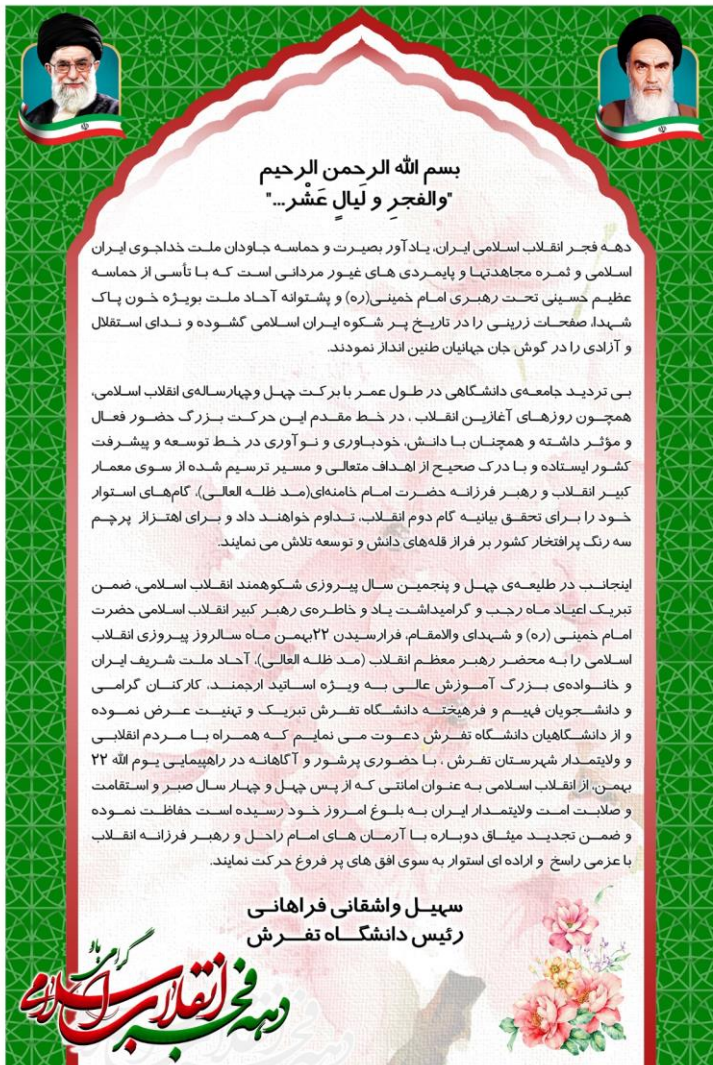 بسم الله الرحمن الرحیم
"والفجرِ و لَیالٍ عَشْر..."
دهه فجر انقلاب اسلامی ایران، یادآور بصیرت و حماسه جاودان ملت خداجوی ایران
اسلامی و ثمره مجاهدتها و پایمردی های غیور مردانی است که با تأسی از حماسه
عظیم حسینی تحت رهبری امام خمینی(ره) و پشتوانه آحاد ملت بویژه خون پاک
شهدا، صفحات زرینی را در تاریخ پر شکوه ایران اسلامی گشوده و ندای استقلال
و آزادی را در گوش جان جهانیان طنین انداز نمودند.
بی تردید جامعه‌ی دانشگاهی در طول عمر با برکت چهل وچهارساله‌ی انقلاب اسلامی،
همچون روزهای آغازین انقلاب ، در خط مقدم این حرکت بزرگ حضور فعال
و مؤثر داشته و همچنان با دانش، خودباوری و نوآوری در خط توسعه و پیشرفت
کشور ایستاده و با درک صحیح از اهداف متعالی و مسیر ترسیم شده از سوی معمار
کبیر انقلاب و رهبر فرزانه حضرت امام خامنه‌ای(مد ظله العالی)، گام‌های استوار
خود را برای تحقق بیانیه گام دوم انقلاب، تداوم خواهند داد و برای اهتزاز پرچم
سه رنگ پرافتخار کشور بر فراز قله‌های دانش و توسعه تلاش می نمایند.
اینجانب در طلیعه‌ی چهل و پنجمین سال پیروزی شکوهمند انقلاب اسلامی، ضمن
تبریک اعیاد ماه رجب و گرامیداشت یاد و خاطره‌ی رهبر کبیر انقلاب اسلامی حضرت
امام خمینی (ره) و شهدای والامقام، فرارسیدن ۲۲بهمن ماه سالروز پیروزی انقلاب
اسلامی را به محضر رهبر معظم انقلاب (مد ظله العالی)، آحاد ملت شریف ایران
و خانواده‌ی بزرگ آموزش عالی به ویژه اساتید ارجمند، کارکنان گرامی
و دانشجویان فهیم و فرهیخته دانشگاه تفرش تبریک و تهنیت عرض نموده
و از دانشگاهیان دانشگاه تفرش دعوت می نمایم که همراه با مردم انقلابی
و ولایتمدار شهرستان تفرش ، با حضوری پرشور و آگاهانه در راهپیمایی یوم الله ۲۲
بهمن، از انقلاب اسلامی به عنوان امانتی که از پس چهل و چهار سال صبر و استقامت
و صلابت امت ولایتمدار ایران به بلوغ امروز خود رسیده است حفاظت نموده
و ضمن تجدید میثاق دوباره با آرمان های امام راحل و رهبر فرزانه انقلاب
با عزمی راسخ و اراده ای استوار به سوی افق های پر فروغ حرکت نمایند.
سهیل واشقانی فراهانی
رئیس دانشگاه تفرش
دهه فجر انقلاب اسلامی
گرامی باد